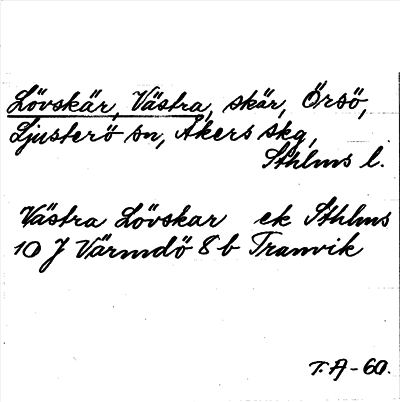 Lövskär, Västra, skär, Örsö,
Ljusterö sn, Åkers skg,
Sthlms l.
Västra Lövskar ek Sthlms
10 J Värmdö 8 b Tranvik
T. A-60.